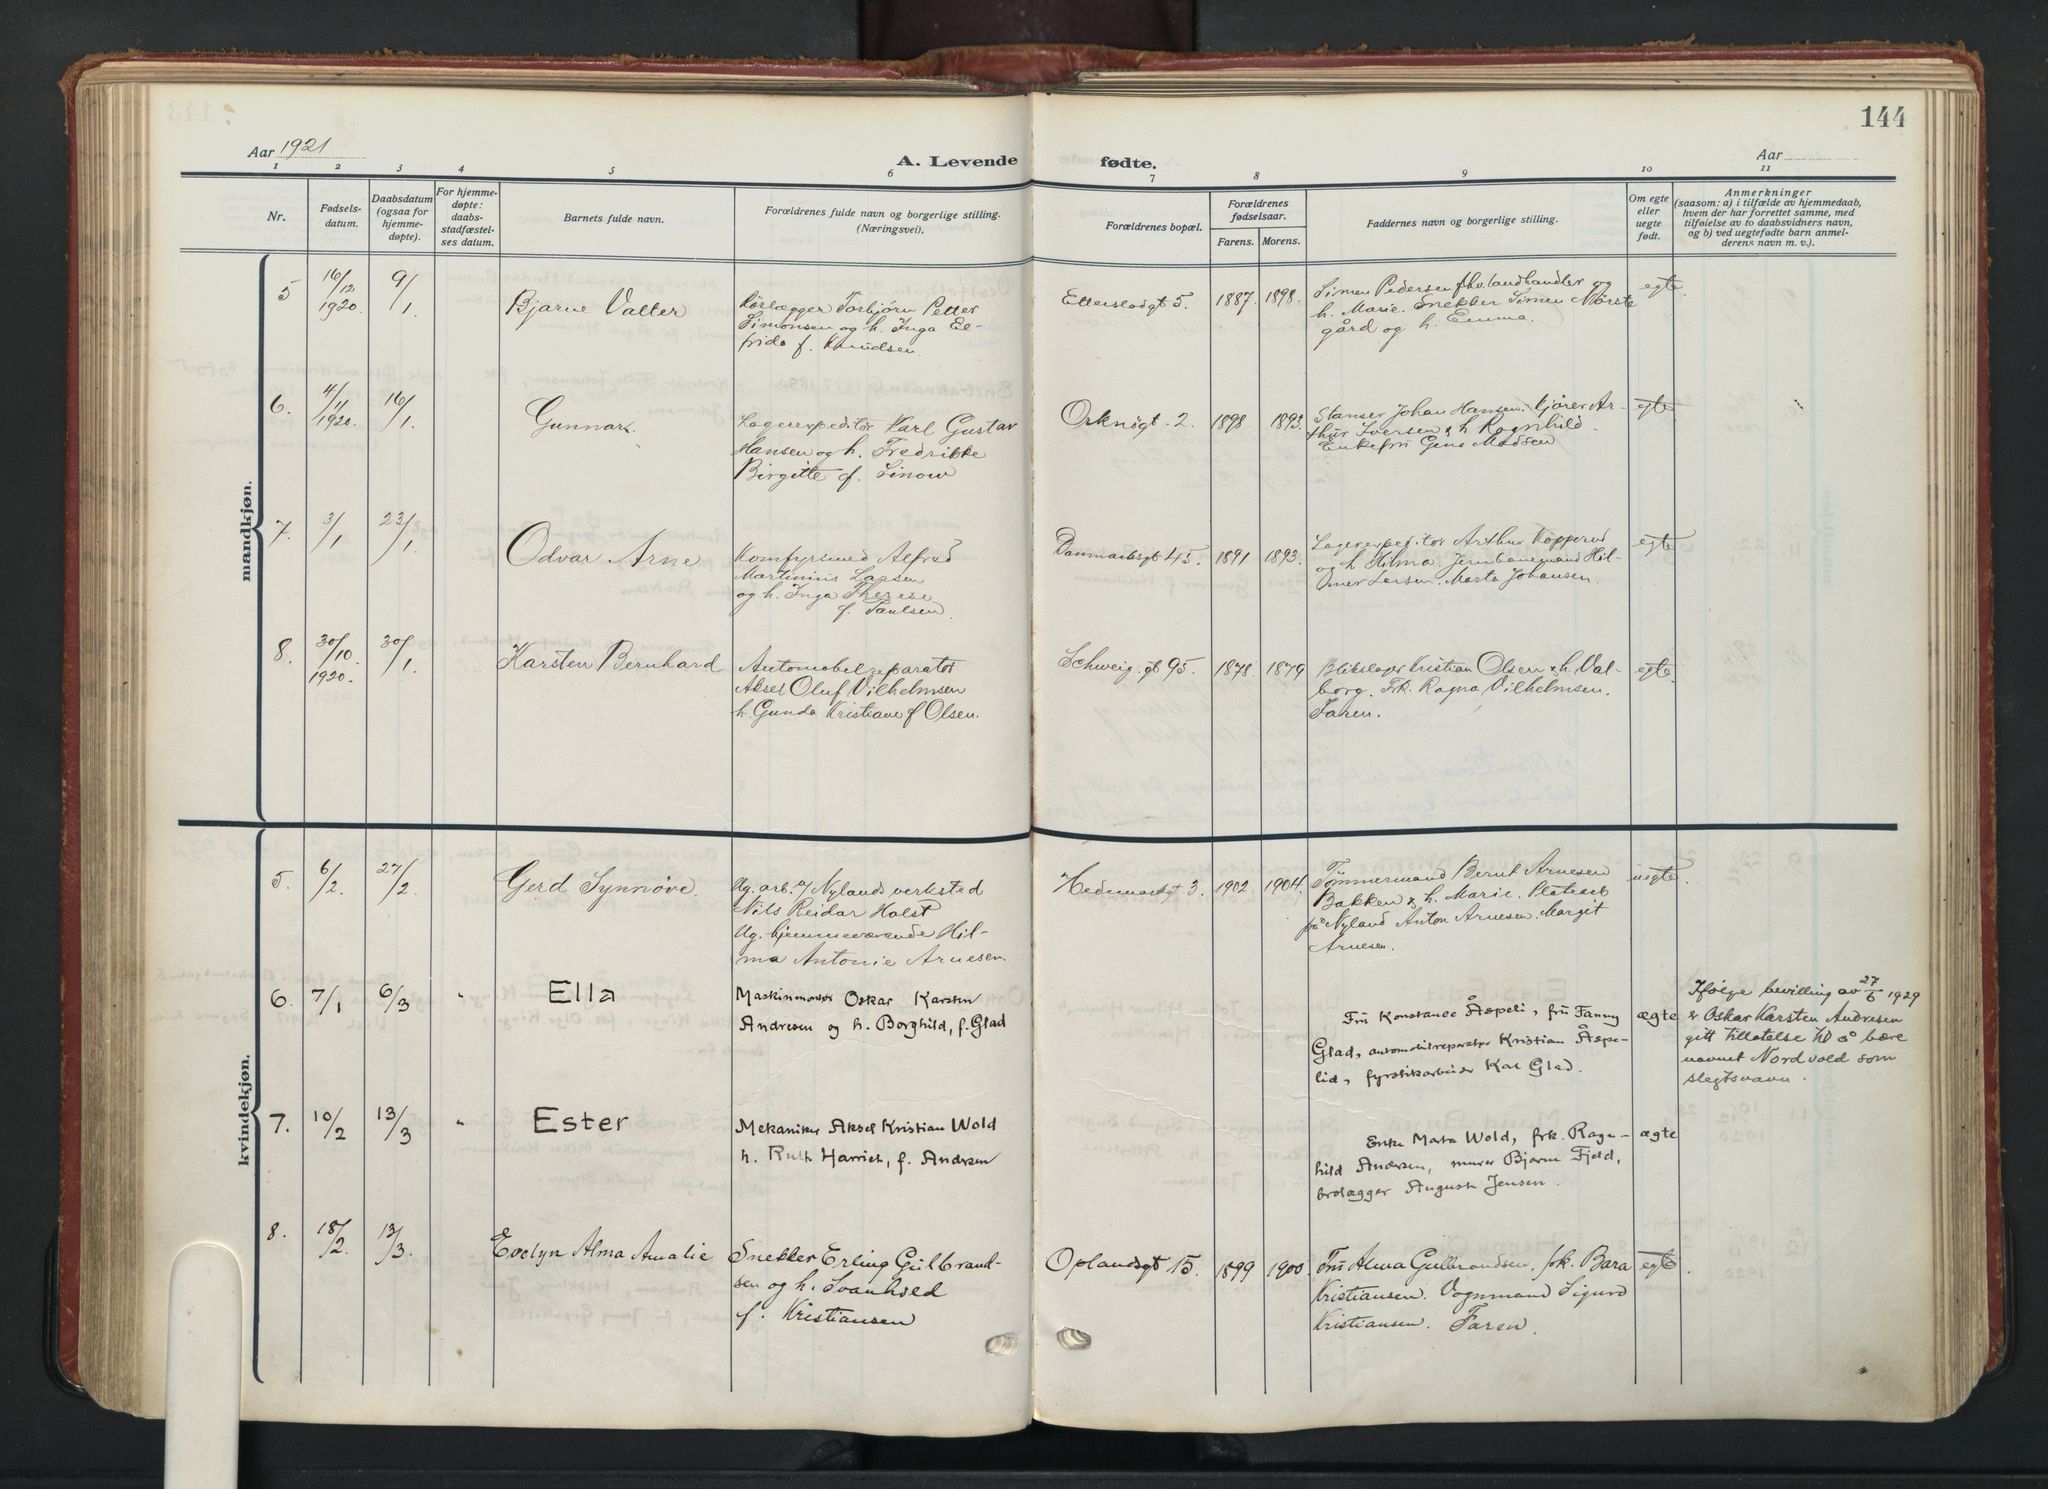 144
Aar 1921
A. Levende fødte.
Aar
1 2 3 4 5 6 7 8 9 10 11
Nr.
Fødsels-
datum.
Daabsdatum
(ogsaa for
hjemme-
døpte).
For hjemme-
døpte:
daabs-
stadfæstel-
ses datum.
Barnets fulde navn.
Forældrenes fulde navn og borgerlige stilling.
(Næringsvei).
Forældrenes bopæl.
Forældrenes
fødselsaar.
Farens. Morens.
Faddernes navn og borgerlige stilling.
Om egte
eller
uegte
født.
Anmerkninger
(saasom: a) i tilfælde av hjemmedaab,
hvem der har forrettet samme, med
tilføielse av to daabsvidners navn,
og b) ved uegtefødte barn anmel-
derens navn m. v.).
mandkjøn.
5
16/12
1920.
9/1.
Bjarne Valter
Rørlægger Torbjørn Petter
Simonsen og h. Inga El-
frida f. Knudsen.
Etterstadgt 5.
1887. 1898.
Simen Pedersen fhv. landhandler og
h. Marie. Snekker Simen Nørste
gård og h. Emma.
egte.
6.
4/11
1920.
16/1.
Gunnar.
Lagerexpeditør Karl Gustav
Hansen og h. Fredrikke
Birgitte f. Sinow
Orknøgt. 2.
1898 1893.
Stanser Johan Hansen. Kjører Ar-
thur Iversen & h Ragnhild.
Enkefru Gena Madsen
egte
7.
3/1
23/1.
Odvar Arne
Komfyrsmed Alfred
Martinius Larsen
og h. Inga Therese
f. Paulsen.
Danmarksgt 45.
1891 1893.
Lagerexpeditør Arthur Kopperud
og h Hilma. Jernbanemand Hil-
mer Larsen. Marta Johansen.
egte
8.
30/10
1920.
30/1.
Karsten Bernhard
Automobilreparatør
Aksel Oluf Vilhelmsen
h. Gunda Kristiane f Olsen.
Schweig. gt 95.
1878. 1879
Blikslager Kristian Olsen & h. Val-
borg. Frk. Ragna Vilhelmsen.
Faren.
egte.
kvindekjøn.
5.
6/2.
27/2.
Gerd Synnöve.
Ug. arb. v/ Nylands verksted
Nils Reidar Holst
Ug. hjemmeværende Hil-
ma Antonie Arnesen.
Hedemarksgt 3.
1902. 1904.
Tömmermand Bernt Arnesen
Bakken & h. Marie. Platearb
på Nyland Anton Arnesen. Margit
Arnesen.
uegte.
6.
7/1
6/3
"
Ella
Maskinmontør Oskar Karsten
Andresen og h. Borghild, f. Glad
Fru Konstance Åspeli, fru Fanny
Glad, automobilreparatør Kristian Åspe-
lid, fyrstikarbeider Karl Glad.
ægte
Ifølge bevilling av 27/6 1929
er Oskar Karsten Andresen
gitt tillatelse til å bære
navnet Nordvold som
slegtsnavn.
7.
10/2
13/3
"
Ester
Mekaniker Aksel Kristian Wold
h. Ruth Harriet, f. Andersen
Enke Marta Wold, frk. Ragn-
hild Andersen, murer Bjarne Fjeld,
brolægger August Jensen.
ægte
8.
18/2.
13/3.
Evelyn Alma Amalie
Snekker Erling Gulbrand-
sen og h. Svanhild
f. Kristiansen
Oplandsgt 15.
1899 1900.
Fru Alma Gulbrandsen. frk. Bara
Kristiansen. Vognmand Sigurd
Kristiansen. Faren.
egte